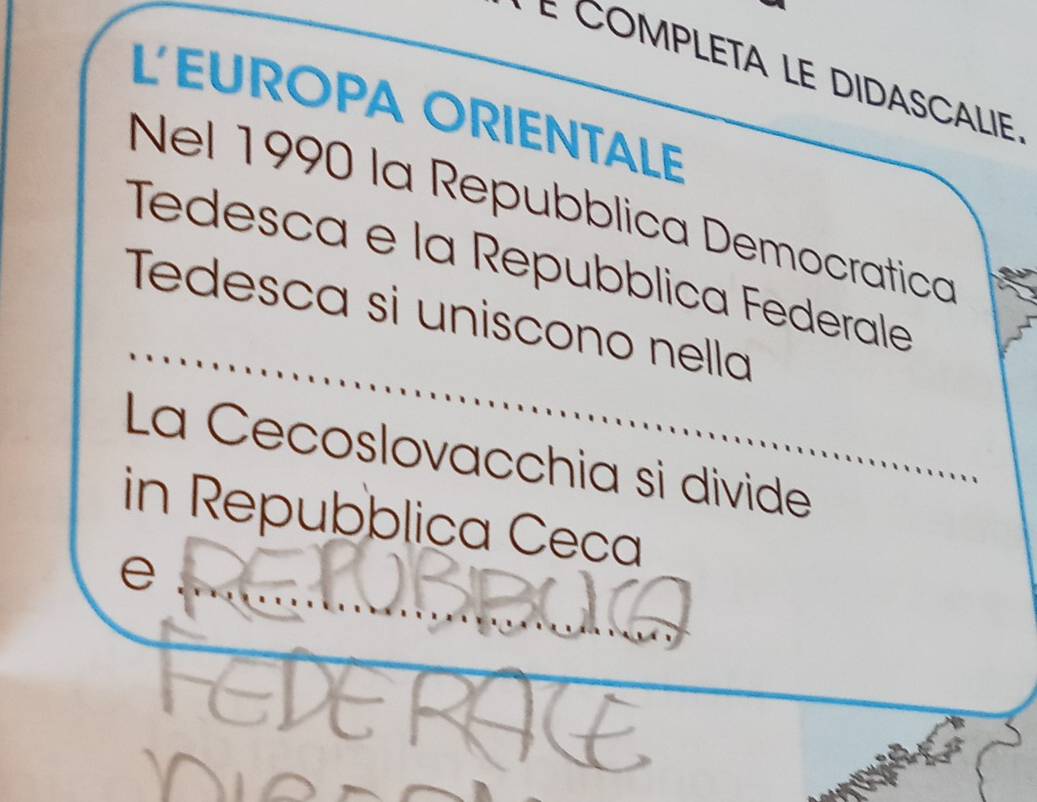 E COMPLETA LE DIDASCALIE.
L'EUROPA ORIENTALE
Nel 1990 la Repubblica Democratica
Tedesca e la Repubblica Federale
Tedesca si uniscono nella
La Cecoslovacchia si divide
in Repubblica Ceca
e REPUBBLICA
FEDERALE